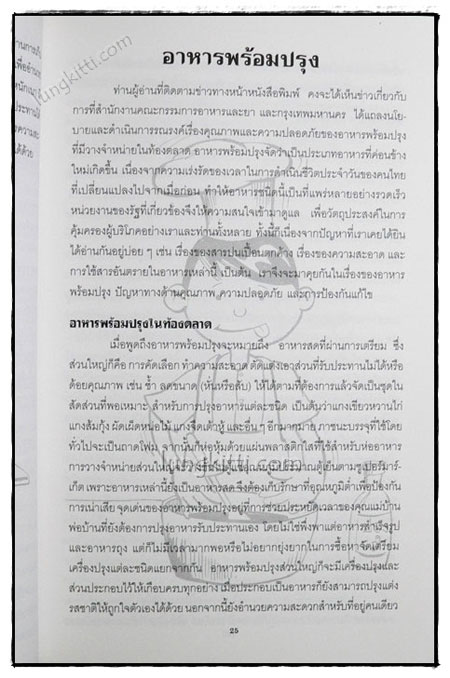 อาหารพร้อมปรุง
ท่านผู้อ่านที่ติดตามข่าวทางหน้าหนังสือพิมพ์ คงจะได้เห็นข่าวเกี่ยวกับ
การที่สำนักงานคณะกรรมการอาหารและยา และกรุงเทพมหานคร ได้แถลงนโย-
บายและดำเนินการรณรงค์เรื่องคุณภาพและความปลอดภัยของอาหารพร้อมปรุง
ที่มีวางจำหน่ายในท้องตลาด อาหารพร้อมปรุงจัดว่าเป็นประเภทอาหารที่ค่อนข้าง
ใหม่เกิดขึ้น เนื่องจากความเร่งรัดของเวลาในการดำเนินชีวิตประจำวันของคนไทย
ที่เปลี่ยนแปลงไปจากเมื่อก่อน ทำให้อาหารชนิดนี้เป็นที่แพร่หลายอย่างรวดเร็ว
หน่วยงานของรัฐที่เกี่ยวข้องจึงให้ความสนใจเข้ามาดูแล เพื่อวัตถุประสงค์ในการ
คุ้มครองผู้บริโภคอย่างเราและท่านทั้งหลาย ทั้งนี้ก็เนื่องจากปัญหาที่เราเคยได้ยิน
ได้อ่านกันอยู่บ่อย ๆ เช่น เรื่องของสารปนเปื้อนตกค้าง เรื่องของความสะอาด และ
การใช้สารอันตรายในอาหารเหล่านี้ เป็นต้น เราจึงจะมาคุยกันในเรื่องของอาหาร
พร้อมปรุง ปัญหาทางด้านคุณภาพ ความปลอดภัย และการป้องกันแก้ไข
อาหารพร้อมปรุงในท้องตลาด
เมื่อพูดถึงอาหารพร้อมปรุงจะหมายถึง อาหารสดที่ผ่านการเตรียม ซึ่ง
ส่วนใหญ่ก็คือ การคัดเลือก ทำความสะอาด ตัดแต่งเอาส่วนที่รับประทานไม่ได้หรือ
ด้อยคุณภาพ เช่น ช้ำ ลดขนาด (หั่นหรือสับ) ให้ได้ตามที่ต้องการแล้วจัดเป็นชุดใน
สัดส่วนที่พอเหมาะ สำหรับการปรุงอาหารแต่ละชนิด เป็นต้นว่าแกงเขียวหวานไก่
แกงส้มกุ้ง ผัดเผ็ดหน่อไม้ แกงจืดเต้าหู้ และอื่น ๆ อีกมากมาย ภาชนะบรรจุที่ใช้โดย
ทั่วไปจะเป็นถาดโฟม จากนั้นก็ห่อหุ้มด้วยแผ่นพลาสติกใสที่ใช้สำหรับห่ออาหาร
การวางจำหน่ายส่วนใหญ่จะวางเรียงในตู้แช่อุณหภูมิประมาณตู้เย็นตามซูเปอร์มาร์-
เก็ต เพราะอาหารเหล่านี้ยังเป็นอาหารสด จึงต้องเก็บรักษาที่อุณหภูมิต่ำเพื่อป้องกัน
การเน่าเสีย จุดเด่นของอาหารพร้อมปรุงอยู่ที่การช่วยประหยัดเวลาของคุณแม่บ้าน
พ่อบ้านที่ยังต้องการปรุงอาหารรับประทานเอง โดยไม่ใช่พึ่งพาแต่อาหารสำเร็จรูป
และอาหารถุง แต่ก็ไม่มีเวลามากพอหรือไม่อยากยุ่งยากในการซื้อหาจัดเตรียม
เครื่องปรุงแต่ละชนิดแยกจากกัน อาหารพร้อมปรุงส่วนใหญ่ก็จะมีเครื่องปรุงและ
ส่วนประกอบไว้ให้เกือบครบทุกอย่าง เมื่อประกอบเป็นอาหารก็ยังสามารถปรุงแต่ง
รสชาติให้ถูกใจตัวเองได้ด้วย นอกจากนี้ยังอำนวยความสะดวกสำหรับที่อยู่คนเดียว
25